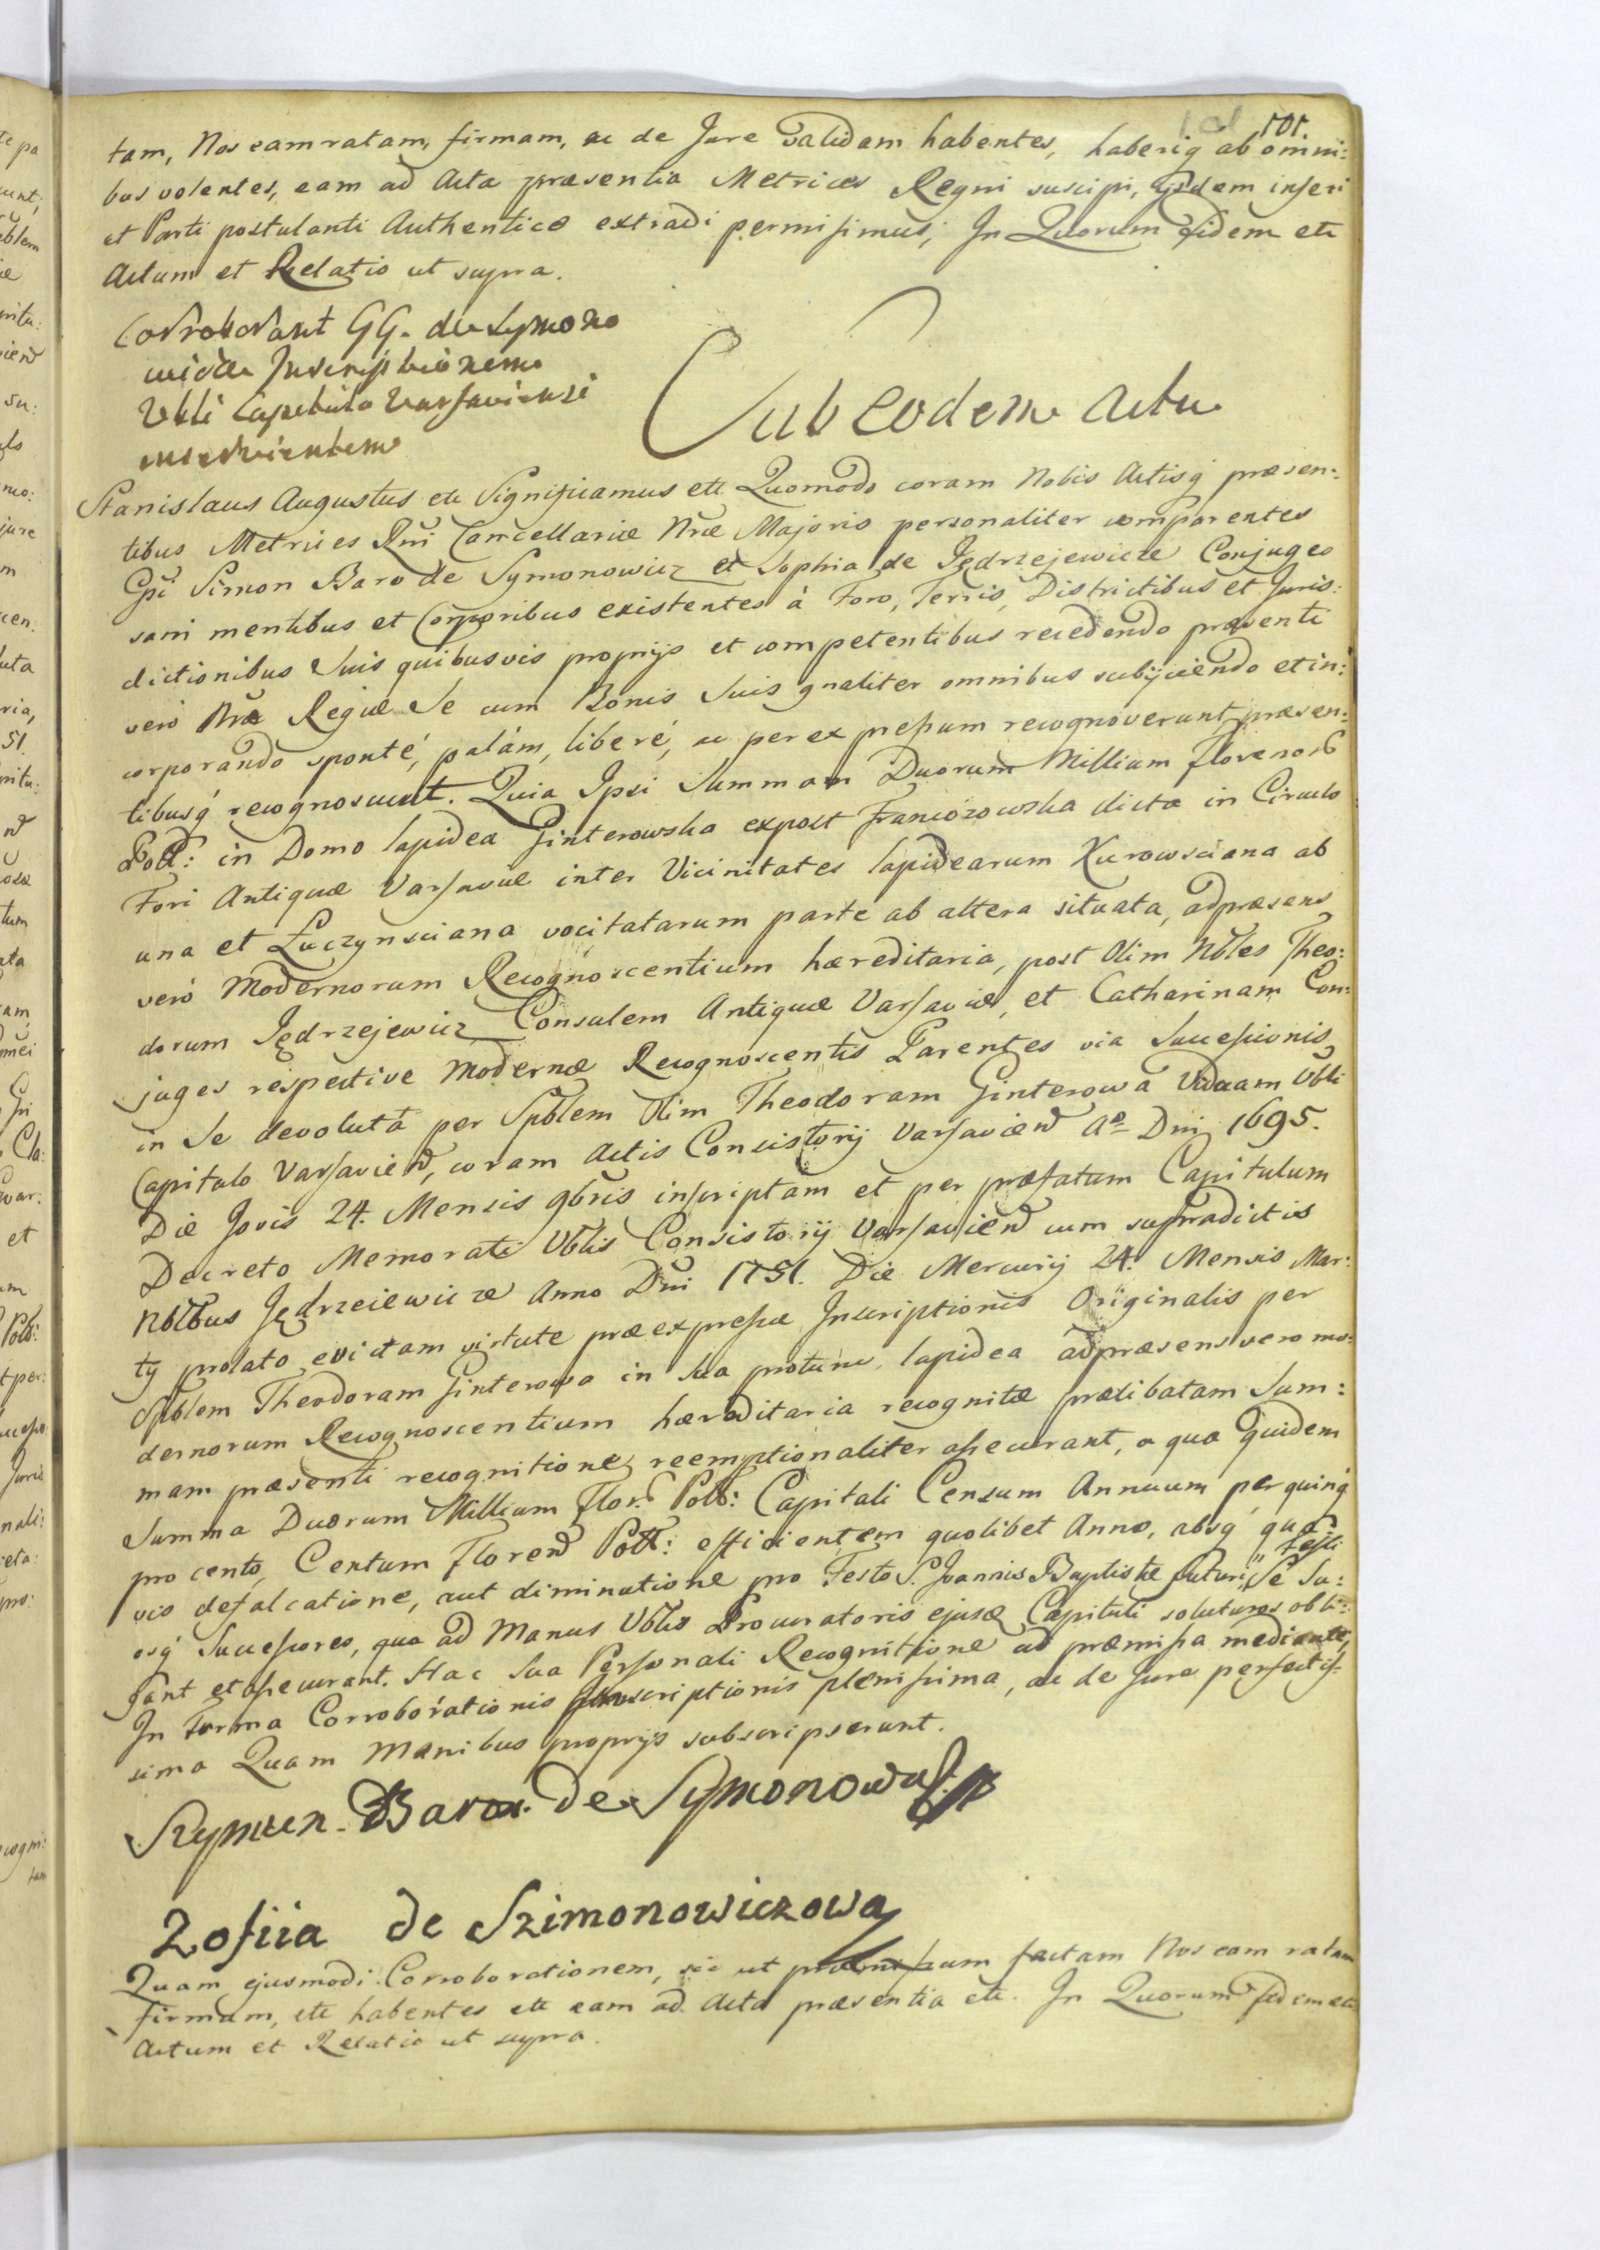 101.
tam, Nos eam ratam, firmam, ac de Jure validam habentes, haberiq ab omni:
bus volentes, eam ad Acta præsentia Metrices Regni suscipi, ijsdem inseri
et Parti postulanti Authentice extradi permisimus; In Quorum fidem etc
Actum et Relatio ut supra.
Corroborant GG. de Symono
wicze Inscriptionem
Vbli Capitulo Varsaviensi
inservientem
Sub Eodem Actu
Stanislaus Augustus etc Significamus etc Quomodo coram Nobis Actisq præsen:
tibus Metrices Rni Cancellariæ Nræ Majoris personaliter comparentes
Gsi Simon Baro de Symonowicz et Sophia de Jędrzejewicze Conjuges
sani mentibus et Corporibus existentes à Foro, Terris, Districtibus et Juris:
dictionibus Suis quibusvis proprijs et competentibus recedendo præsenti
verò Nræ Regiæ Se cum Bonis Suis gnaliter omnibus subijciendo et in:
corporando sponté, palám, liberé, ac per expressum recognoverunt, præsen:
tibusq recognoscunt. Quia Ipsi Summam Duorum Millium florenorũ
Poll: in Domo lapidea Ginterowska expost Francózowska dicta in Circulo
Fori Antiquæ Varsaviæ inter Vicinitates lapidearum Kurowsciana ab
una et Łuczynsciana vocitatarum parte ab altera situata, adpræsens
verò Modernorum Recognoscentium hæreditaria, post Olim Nbles Theo:
dorum Jędrzejewicz Consulem Antiquæ Varsaviæ, et Catharinam Con:
juges respective Modernæ Recognoscentis Parentes via Successionis
in Se devoluta per Spblem Olim Theodoram Ginterowa Viduam Vbli
Capitulo Varsavien, coram Actis Consistorij Varsavien Aº Dni 1695.
Die Jovis 24. Mensis 9bris inscriptam et per præfatum Capitulum
Decreto Memorati Vblis Consistorij Varsavien cum supradictis
Nblbus Jędrzeiewicze Anno Dni 1751. Die Mercurij 24. Mensis Mar:
tij prolato evictam virtute præexpressæ Inscriptionis Originalis per
Spblem Theodoram Ginterowa in Sua protunc lapidea adpræsens vero mo:
dernorum Recognoscentium hæreditaria recognitæ prælibatam Sum:
mam præsenti recognitione reemptionaliter assecurant, a qua quidem
Summa Duorum Millium Flor. Poll: Capitali Censum Annuum per quinq
pro cento, Centum Floren Poll: efficientem quolibet Anno, absq qua
vis defalcatione, aut diminutione pro Festo S. Joannis Baptistæ futuri, Se Su:
osq Successores, qua ad Manus Vblis Procuratoris ejusd Capituli soluturos obli:
gant et assecurant. Hac Sua Personali Recognitione ad præmissa mediante,
In Forma Corroborationis Inscriptionis plenissima, ac de Jure perfectis:
sima Quam Manibus proprijs subscripserunt.
Szymun Baron de Symonowicz
Zofiia de Szimonowiczowa
Quam ejusmodi Corroborationem, sic ut præmissum factam Nos eam ratam
firmam, etc habentes etc eam ad Acta præsentia etc. In Quorum fidem etc
Actum et Relatio ut supra.